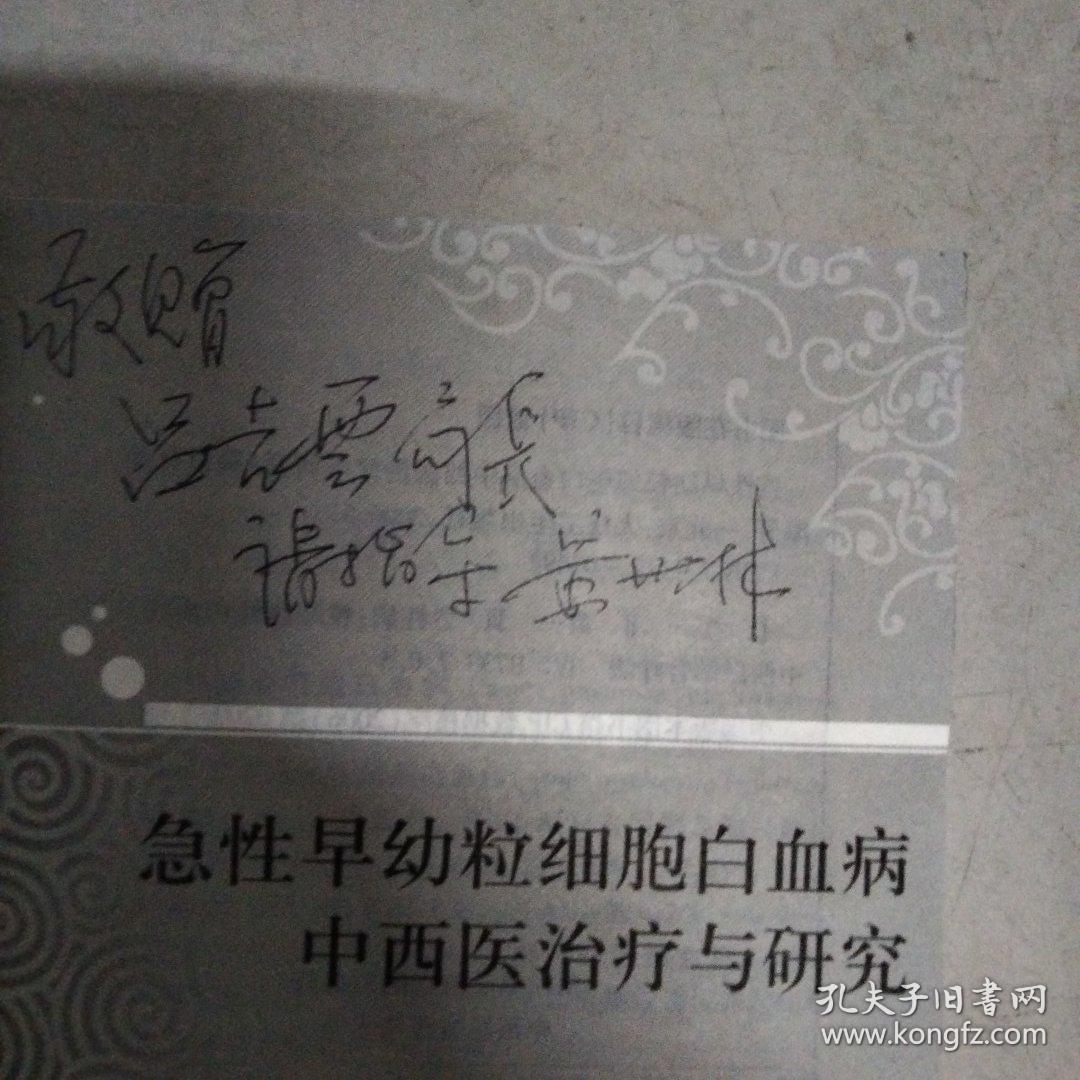 敬赠
吕吉云局长
请指导 黄世林
急性早幼粒细胞白血病
中西医治疗与研究
孔夫子旧書网
www.kongfz.com